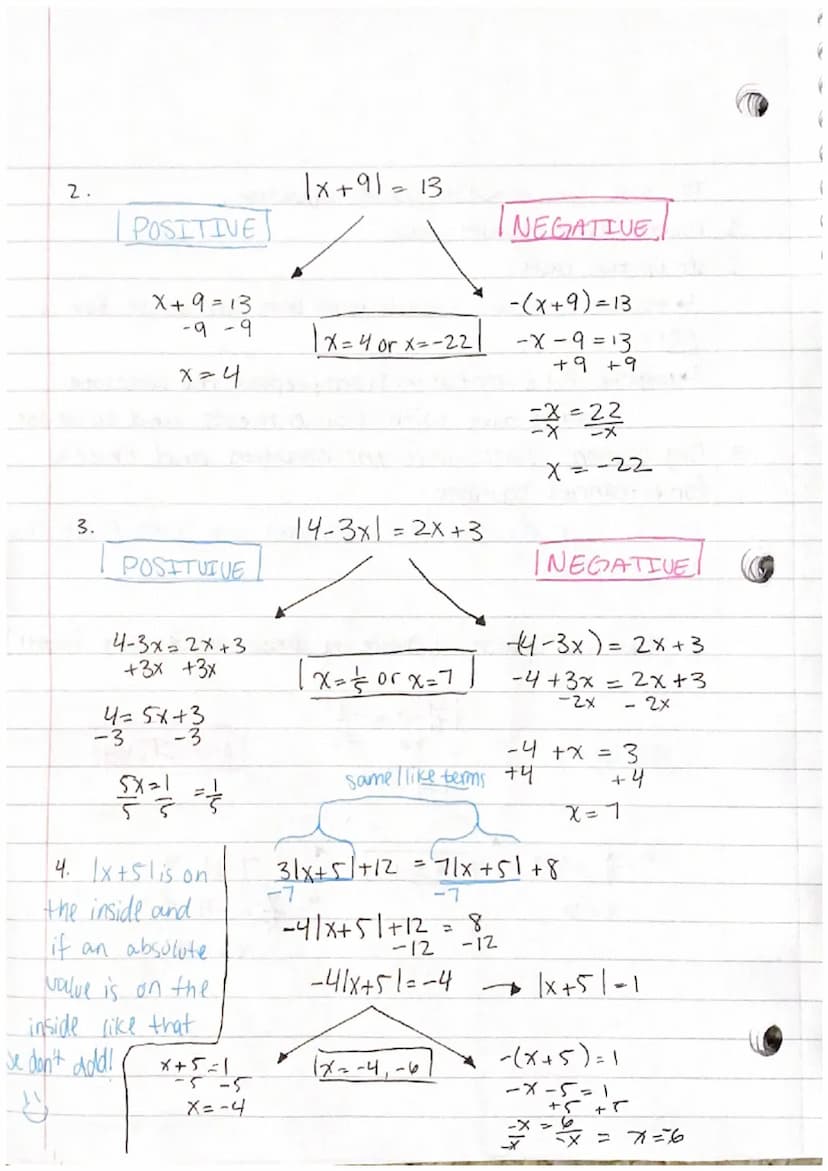 2. |x+9| = 13
POSITIVE NEGATIVE
x+9=13 -(x+9)=13
-9 -9 x=4 or x=-22 -x-9=13
x=4 +9 +9
-x = 22
-x -x
x = -22
3. |4-3x| = 2x+3
POSITUIVE NEGATIVE
4-3x=2x+3 -(4-3x) = 2x+3
+3x +3x x=1/5 or x=7 -4+3x = 2x+3
4=5x+3 -2x -2x
-3 -3 -4+x = 3
5x=1 =1/5 same/like terms +4 +4
5 5 x=7
4. |x+5| is on 3|x+5|+12 = 7|x+5|+8
the inside and -7 -7
if an absolute -4|x+5|+12 = 8
-12 -12
value is on the -4|x+5|=-4 → |x+5|=1
inside like that
we don't add! x+5=1 x=-4,-6 -(x+5)=1
-5 -5 -x-5=1
x=-4 +5 +5
-x = 6 = x=-6
-x -x